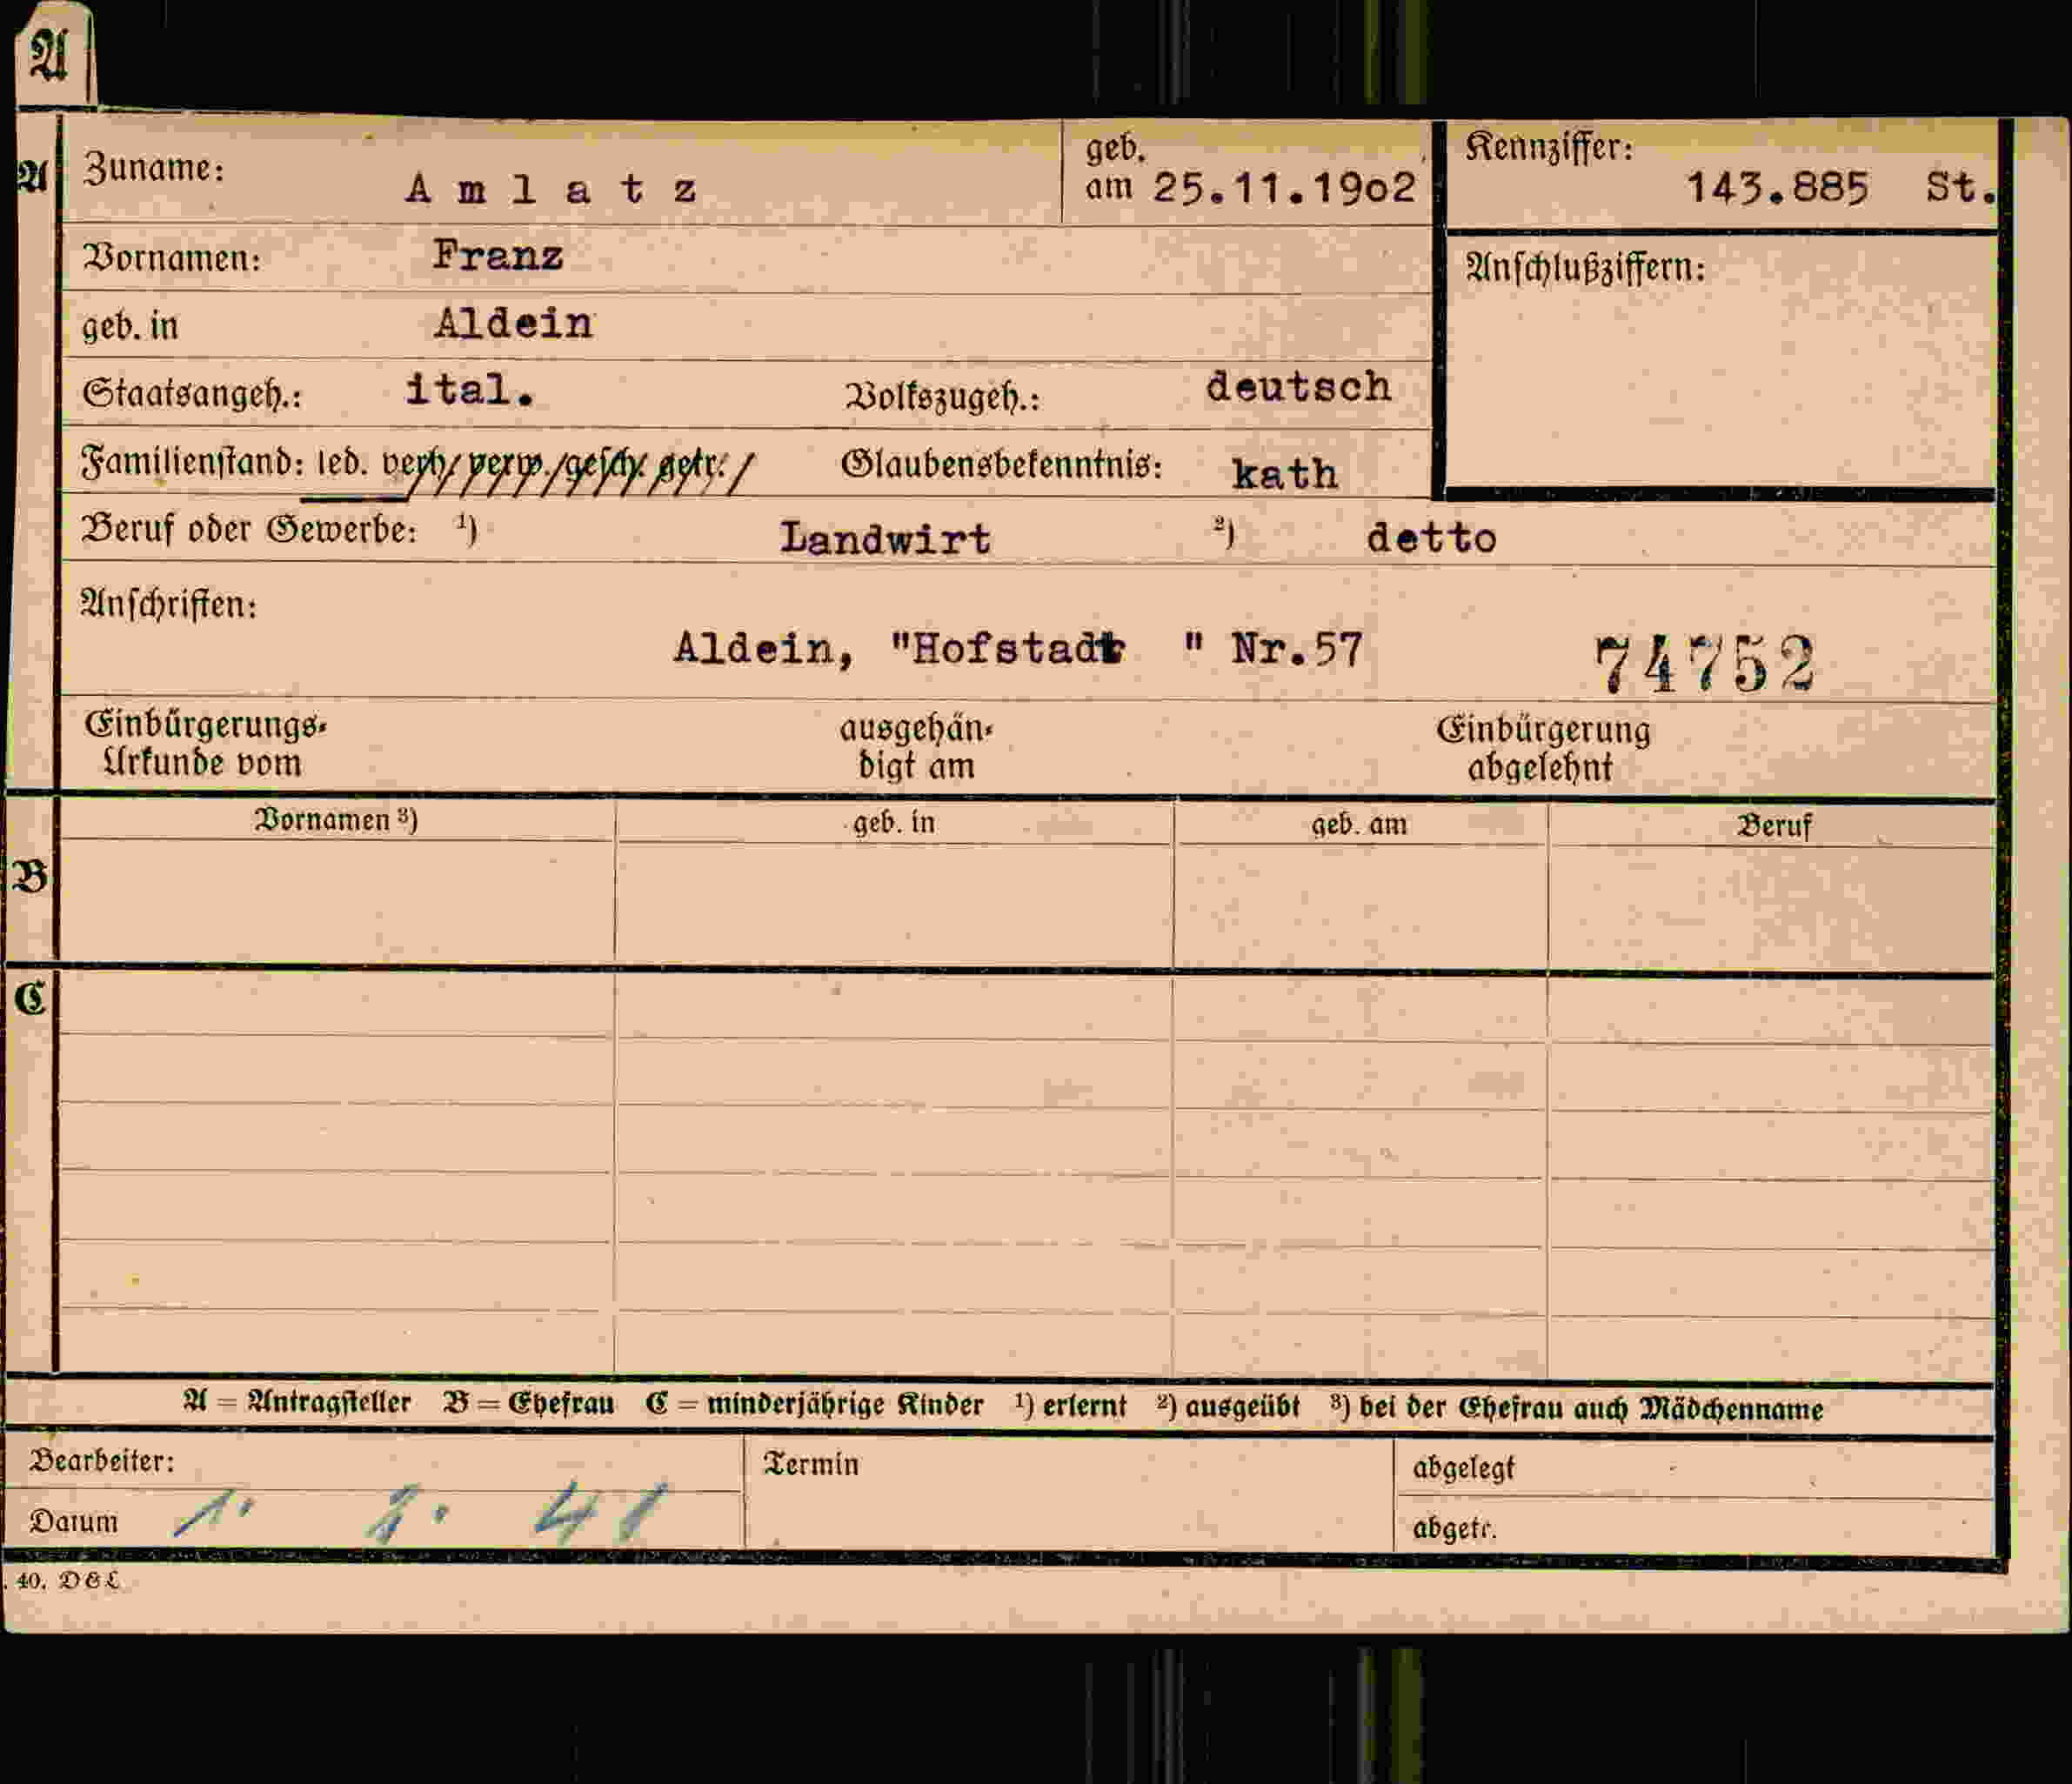 A
A Zuname: Amlatz geb. am 25.11.19o2 Kennziffer: 143.885 St.
Vornamen: Franz Anschlußziffern:
geb. in Aldein
Staatsangeh.: ital. Volkszugeh.: deutsch
Familienstand: led. verh. verw. gesch. getr. Glaubensbekenntnis: kath
Beruf oder Gewerbe: ¹) Landwirt ²) detto
Anschriften:
Aldein, "Hofstadt " Nr.57 74752
Einbürgerungs- ausgehän- Einbürgerung
Urkunde vom digt am abgelehnt
Vornamen ³) geb. in geb. am Beruf
B
C
A = Antragsteller B = Ehefrau C = minderjährige Kinder ¹) erlernt ²) ausgeübt ³) bei der Ehefrau auch Mädchenname
Bearbeiter: Termin abgelegt
Datum 1. 2. 41 abgetr.
. 40. D&L